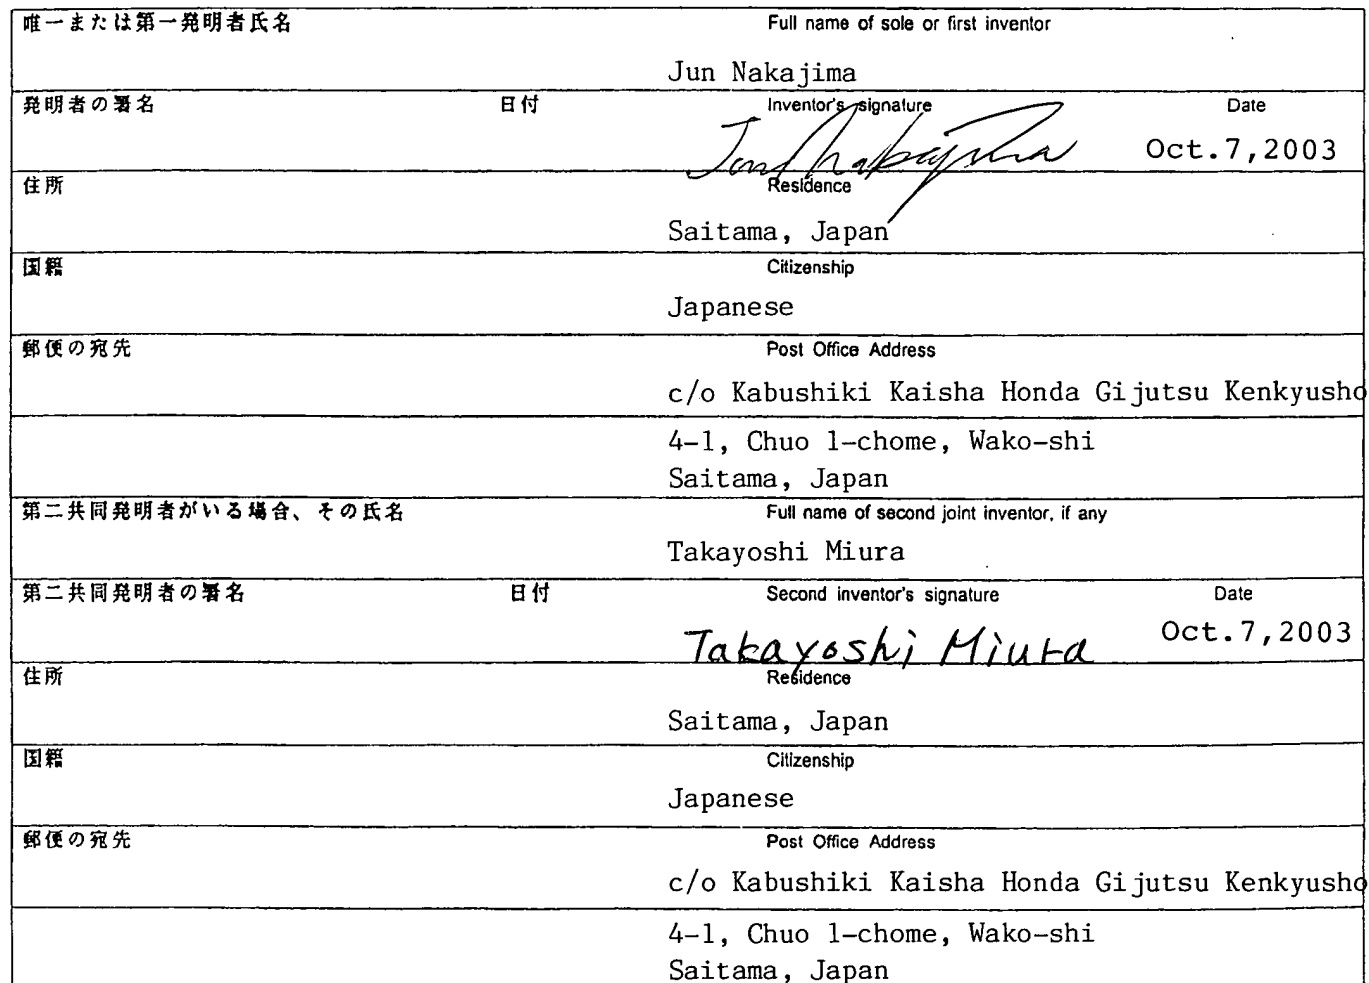 唯一または第一発明者氏名 Full name of sole or first inventor
Jun Nakajima
発明者の署名 日付 Inventor's signature Date
Jun Nakajima Oct.7,2003
住所 Residence
Saitama, Japan
国籍 Citizenship
Japanese
郵便の宛先 Post Office Address
c/o Kabushiki Kaisha Honda Gijutsu Kenkyusho
4-1, Chuo 1-chome, Wako-shi
Saitama, Japan
第二共同発明者がいる場合、その氏名 Full name of second joint inventor, if any
Takayoshi Miura
第二共同発明者の署名 日付 Second inventor's signature Date
Takayoshi Miura Oct.7,2003
住所 Residence
Saitama, Japan
国籍 Citizenship
Japanese
郵便の宛先 Post Office Address
c/o Kabushiki Kaisha Honda Gijutsu Kenkyusho
4-1, Chuo 1-chome, Wako-shi
Saitama, Japan